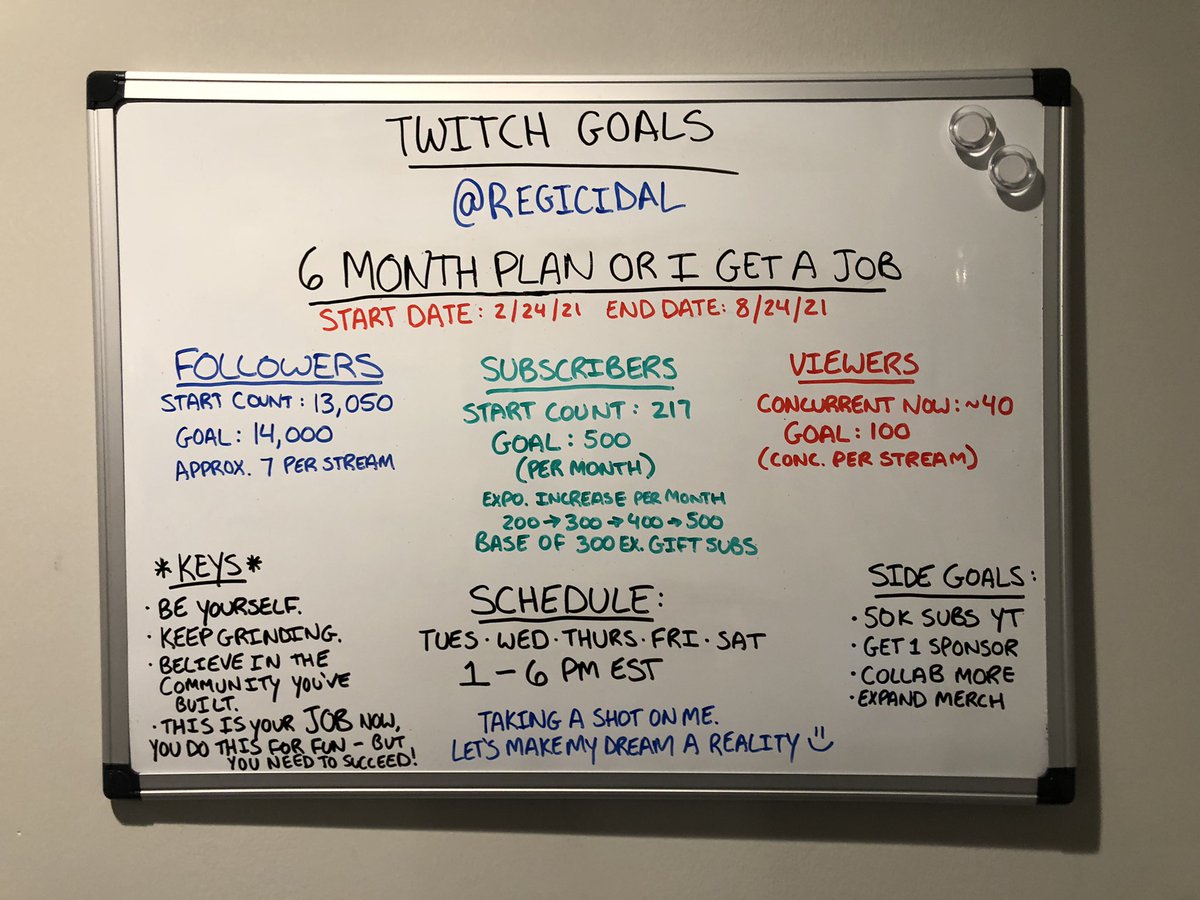 TWITCH GOALS
@REGICIDAL
6 MONTH PLAN OR I GET A JOB
START DATE: 2/24/21 END DATE: 8/24/21
FOLLOWERS
START COUNT: 13,050
GOAL: 14,000
APPROX. 7 PER STREAM
SUBSCRIBERS
START COUNT: 217
GOAL: 500
(PER MONTH)
EXPO. INCREASE PER MONTH
200→300→400→500
BASE OF 300 EX. GIFT SUBS
VIEWERS
CONCURRENT NOW: ~40
GOAL: 100
(CONC. PER STREAM)
*KEYS*
· BE YOURSELF.
· KEEP GRINDING.
· BELIEVE IN THE
COMMUNITY YOU'VE
BUILT.
· THIS IS YOUR JOB NOW,
YOU DO THIS FOR FUN – BUT
YOU NEED TO SUCCEED!
SCHEDULE:
TUES · WED · THURS · FRI · SAT
1 – 6 PM EST
TAKING A SHOT ON ME.
LET'S MAKE MY DREAM A REALITY
SIDE GOALS:
· 50K SUBS YT
· GET 1 SPONSOR
· COLLAB MORE
· EXPAND MERCH